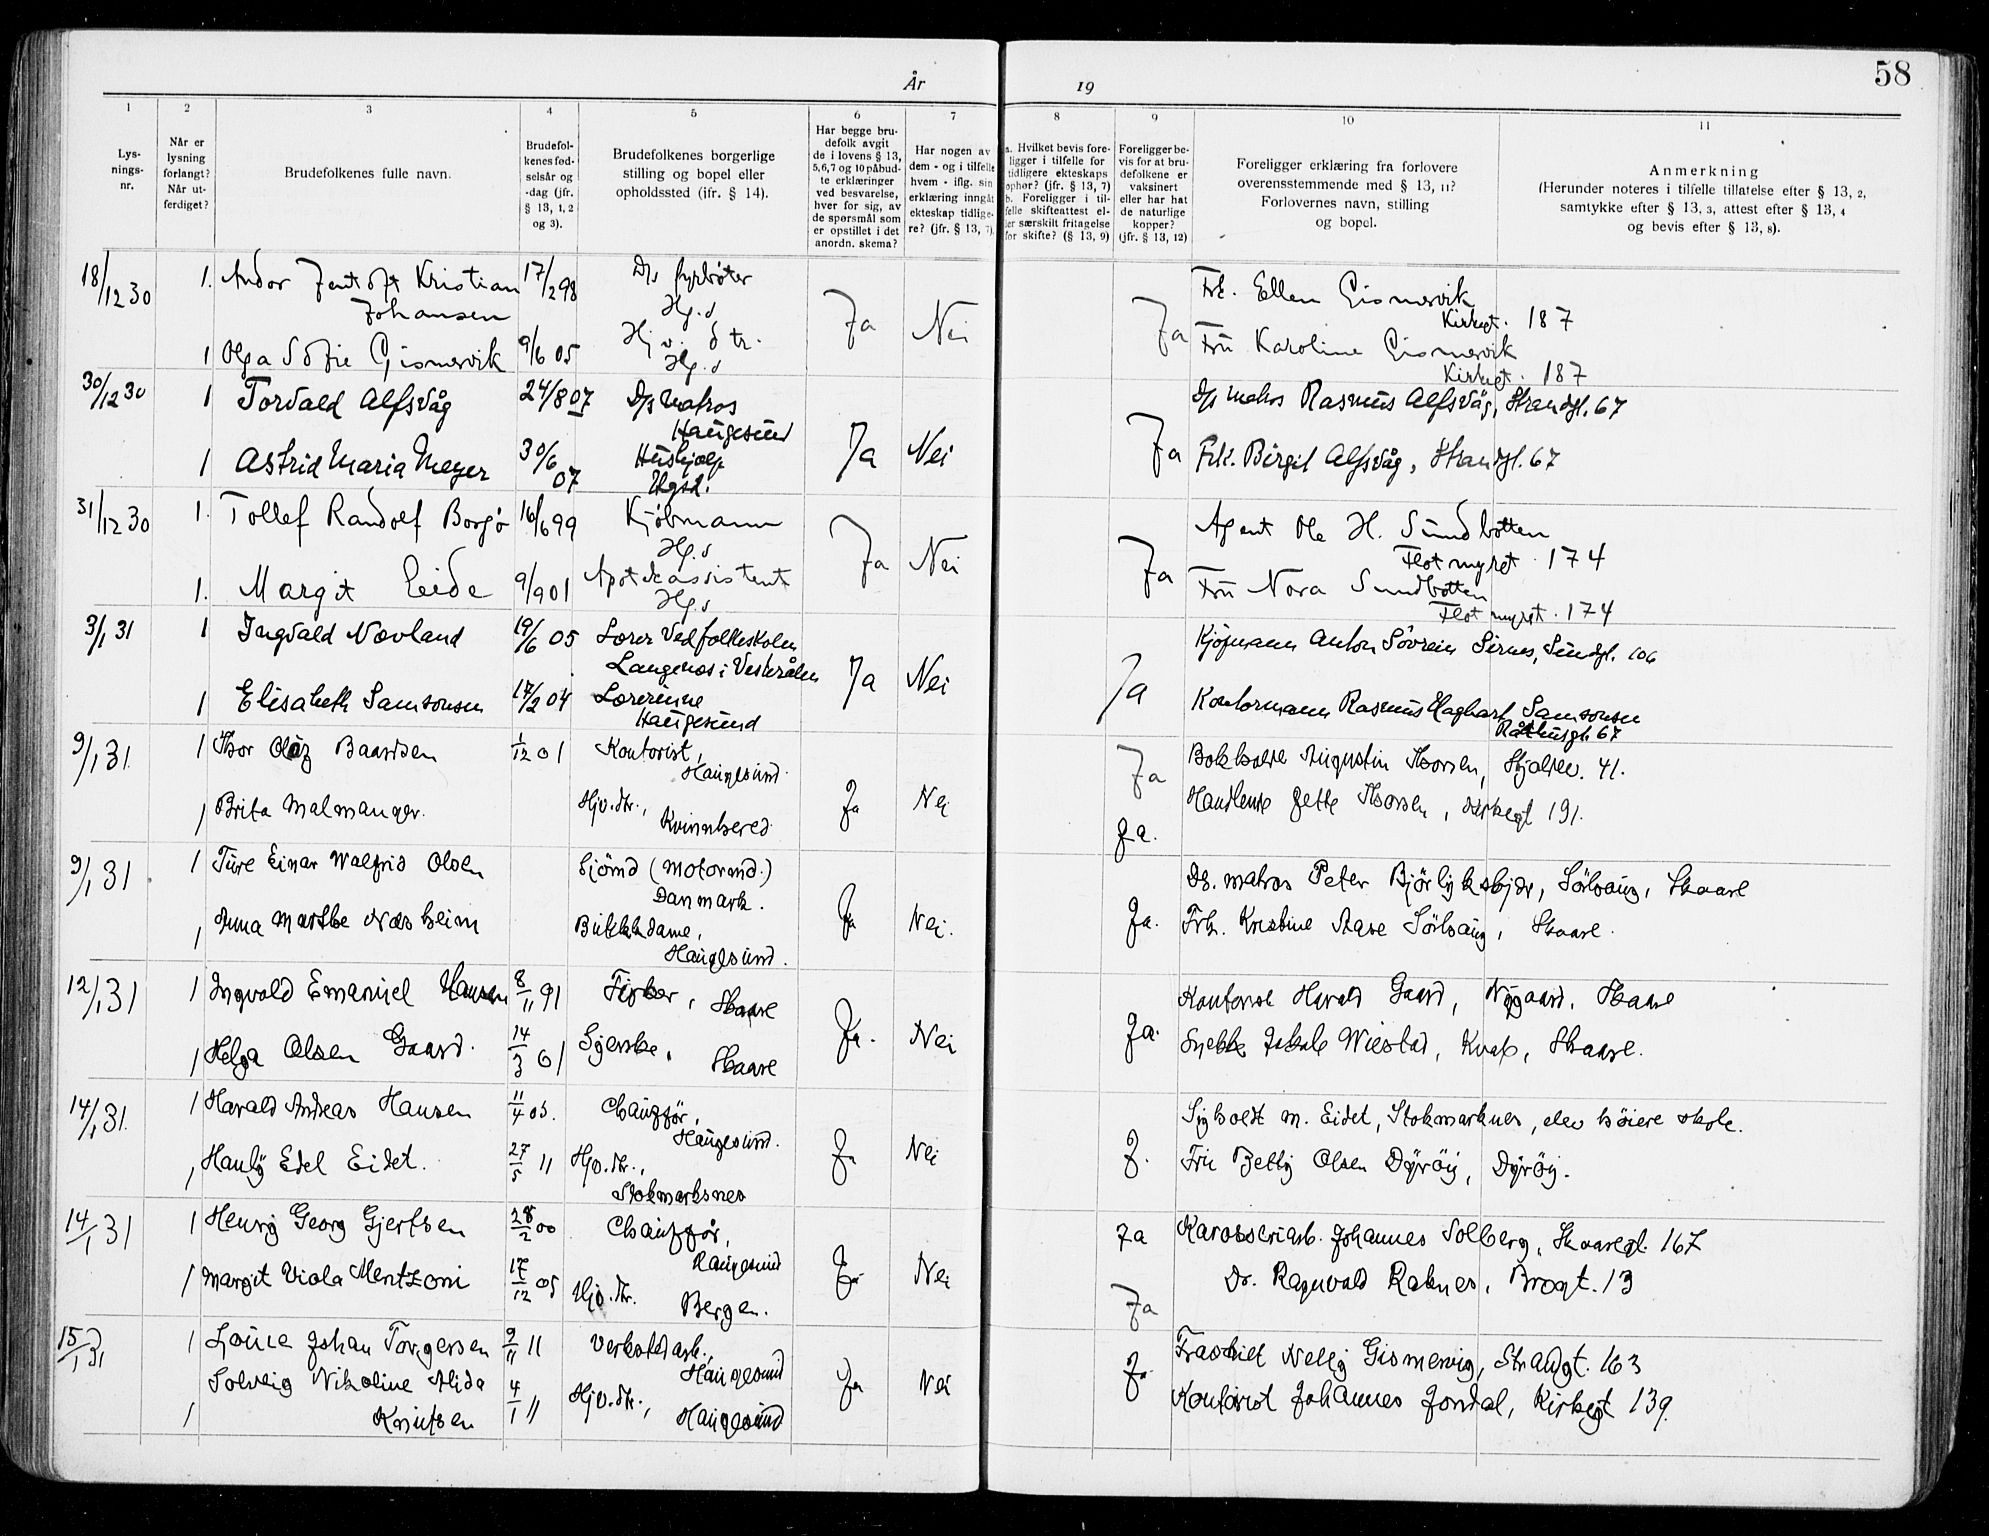 58
År
19
1
2
3
4
5
6
7
8
9
10
11
Lys-
nings-
nr.
Når er
lysning
forlangt?
Når ut-
ferdiget?
Brudefolkenes fulle navn.
Brudefol-
kenes fød-
selsår og
-dag (jfr.
§ 13, 1, 2
og 3).
Brudefolkenes borgerlige
stilling og bopel eller
opholdssted (ifr. § 14).
Har begge bru-
defolk avgit
de i lovens § 13,
5,6,7 og 10 påbud-
te erklæringer
ved besvarelse,
hver for sig, av
de spørsmål som
er opstillet i det
anordn. skema?
Har nogen av
dem - og i tilfelle
hvem - iflg. sin
erklæring inngåt
ekteskap tidlige-
re? (jfr. § 13, 7).
a. Hvilket bevis fore-
ligger i tilfelle for
tidligere ekteskaps
ophør? (jfr. § 13, 7)
b. Foreligger i til-
felle skifteattest el-
ler særskilt fritagelse
for skifte? (§ 13, 9)
Foreligger be-
vis for at bru-
defolkene er
vaksinert
eller har hat
de naturlige
kopper?
(jfr. § 13, 12)
Foreligger erklæring fra forlovere
overensstemmende med § 13, 11?
Forlovernes navn, stilling
og bopel.
Anmerkning
(Herunder noteres i tilfelle tillatelse efter § 13, 2,
samtykke efter § 13, 3, attest efter § 13, 4
og bevis efter § 13, 8).
18/12 30 1. Andor Jentoft Kristian 17/2 98 D/s fyrbøter Frk. Ellen Gismervik
Johansen Hg.s Ja Nei Ja Kirkegt. 187
1 Olga Sofie Gismervik 9/6 05 Hj.v. dtr. Fru Karoline Gismervik
Hg.s Kirkegt. 187
30/12 30 1 Torvald Alfsvåg 24/8 07 D/s Matros D/s matros Rasmus Alfsvåg, Strandgt. 67
Haugesund Ja Nei Ja
1 Astrid Maria Meyer 30/6 07 Hushjælp Frk. Birgit Alfsvåg, Strandgt. 67
Hgsd.
31/12 30 1. Tollef Randolf Borgø 16/6 99 Kjøbmann Agent Ole H. Sundbotten
Hg.s Ja Nei Ja Flotmyrgt. 174
1. Margit Eide 9/9 01 Apotekassistent Fru Nora Sundbotten
Hg.s Flotmyrgt. 174
3/1 31 1 Ingvald Nævland 19/6 05 Lærer ved folkeskolen Kjøpmann Anton Søvrein Sirnes, Sundgt. 106
Langenes i Vesterålen Ja Nei Ja
1 Elisabeth Samsonsen 17/2 04 Lærerinne Kontormann Rasmus Hagbart Samsonsen
Haugesund Råthusgt. 67
9/1 31. 1 Thor Baardsen 1/12 01 Kontorist, Ja Bokholder Augustin Thorsen, 41.
Haugesund.
1 Brita Malmanger. Hjv. dtr., Ja Nei Ja. Thorsen, Kirkegt 191.
Kvinnhered
9/1 31 1 Ture Einar Walfrid Olsen Sjömd (motormd.) Ds. matros Peter Sörhaug, Skaare
Danmark. Ja Nei. Ja.
1 Anna Marthe Næsheim Butikkdame, Frk. Kristine Aase Sörhaug, Skaare.
Haugesund.
12/1 31 1 Ingvald Emanuel Hansen 8/11 91 Fisker, Skaare Kontorist Harald Gaard, Nygaard, Skaare
Ja. Nei Ja.
1 Helga Olsen Gaard. 14/3 01 Syerske, Skaare Jakob Wiestad, Skaare.
14/1 31. 1 Harald Andreas Hansen 11/4 05. Chauffør, M. Eidet, Stokmarknes, elev höiere skole.
Haugesund. Ja Nei J.
1 Hauly Edel Eidet. 27/5 11 Hjv. dtr., Fru Betty Olsen Dyröy, Dyröy.
Stokmarksnes
14/1 31 1 Henry Georg Gjertsen 28/2 00 Chauffør, Ja Karosseriarb. Johannes Solberg, Skaaregt. 167
Haugesund Ja Nei
1 Margit Viola Mentzoni 17/12 05 Hjv. dtr. Ja Dr. Ragnvald Raknes, Brogt. 13
Bergen.
15/1 31 1 Johan Torgersen 9/11 11 Verkstedarb., Nelly Gismervig, Strandgt. 163
Haugesund Ja Nei Ja
Solveig Nikoline Alida 4/1 11 Hjv. dtr., Kontorist Johannes Jondal, Kirkegt 139.
1 Knutsen Haugesund